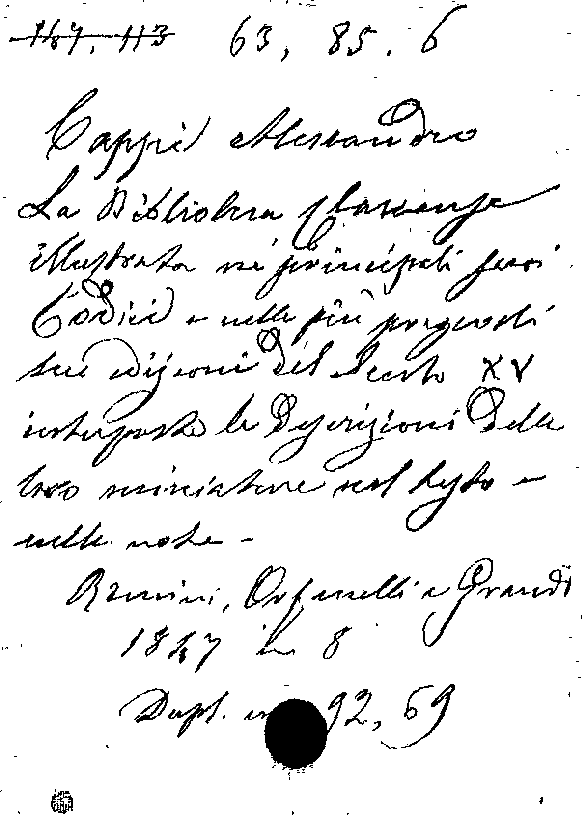 147. 113 63, 85. 6
Cappi Alessandro
La Biblioteca Classense
illustrata ne' principali suoi
Codici e nelle più pregevoli
sue edizioni del Secolo XV
interposte le Descrizioni delle
loro miniature nel testo e
nelle note -
Rimini, Orfanelli e Grandi
1847 in 8
Dupl. in 92, 69